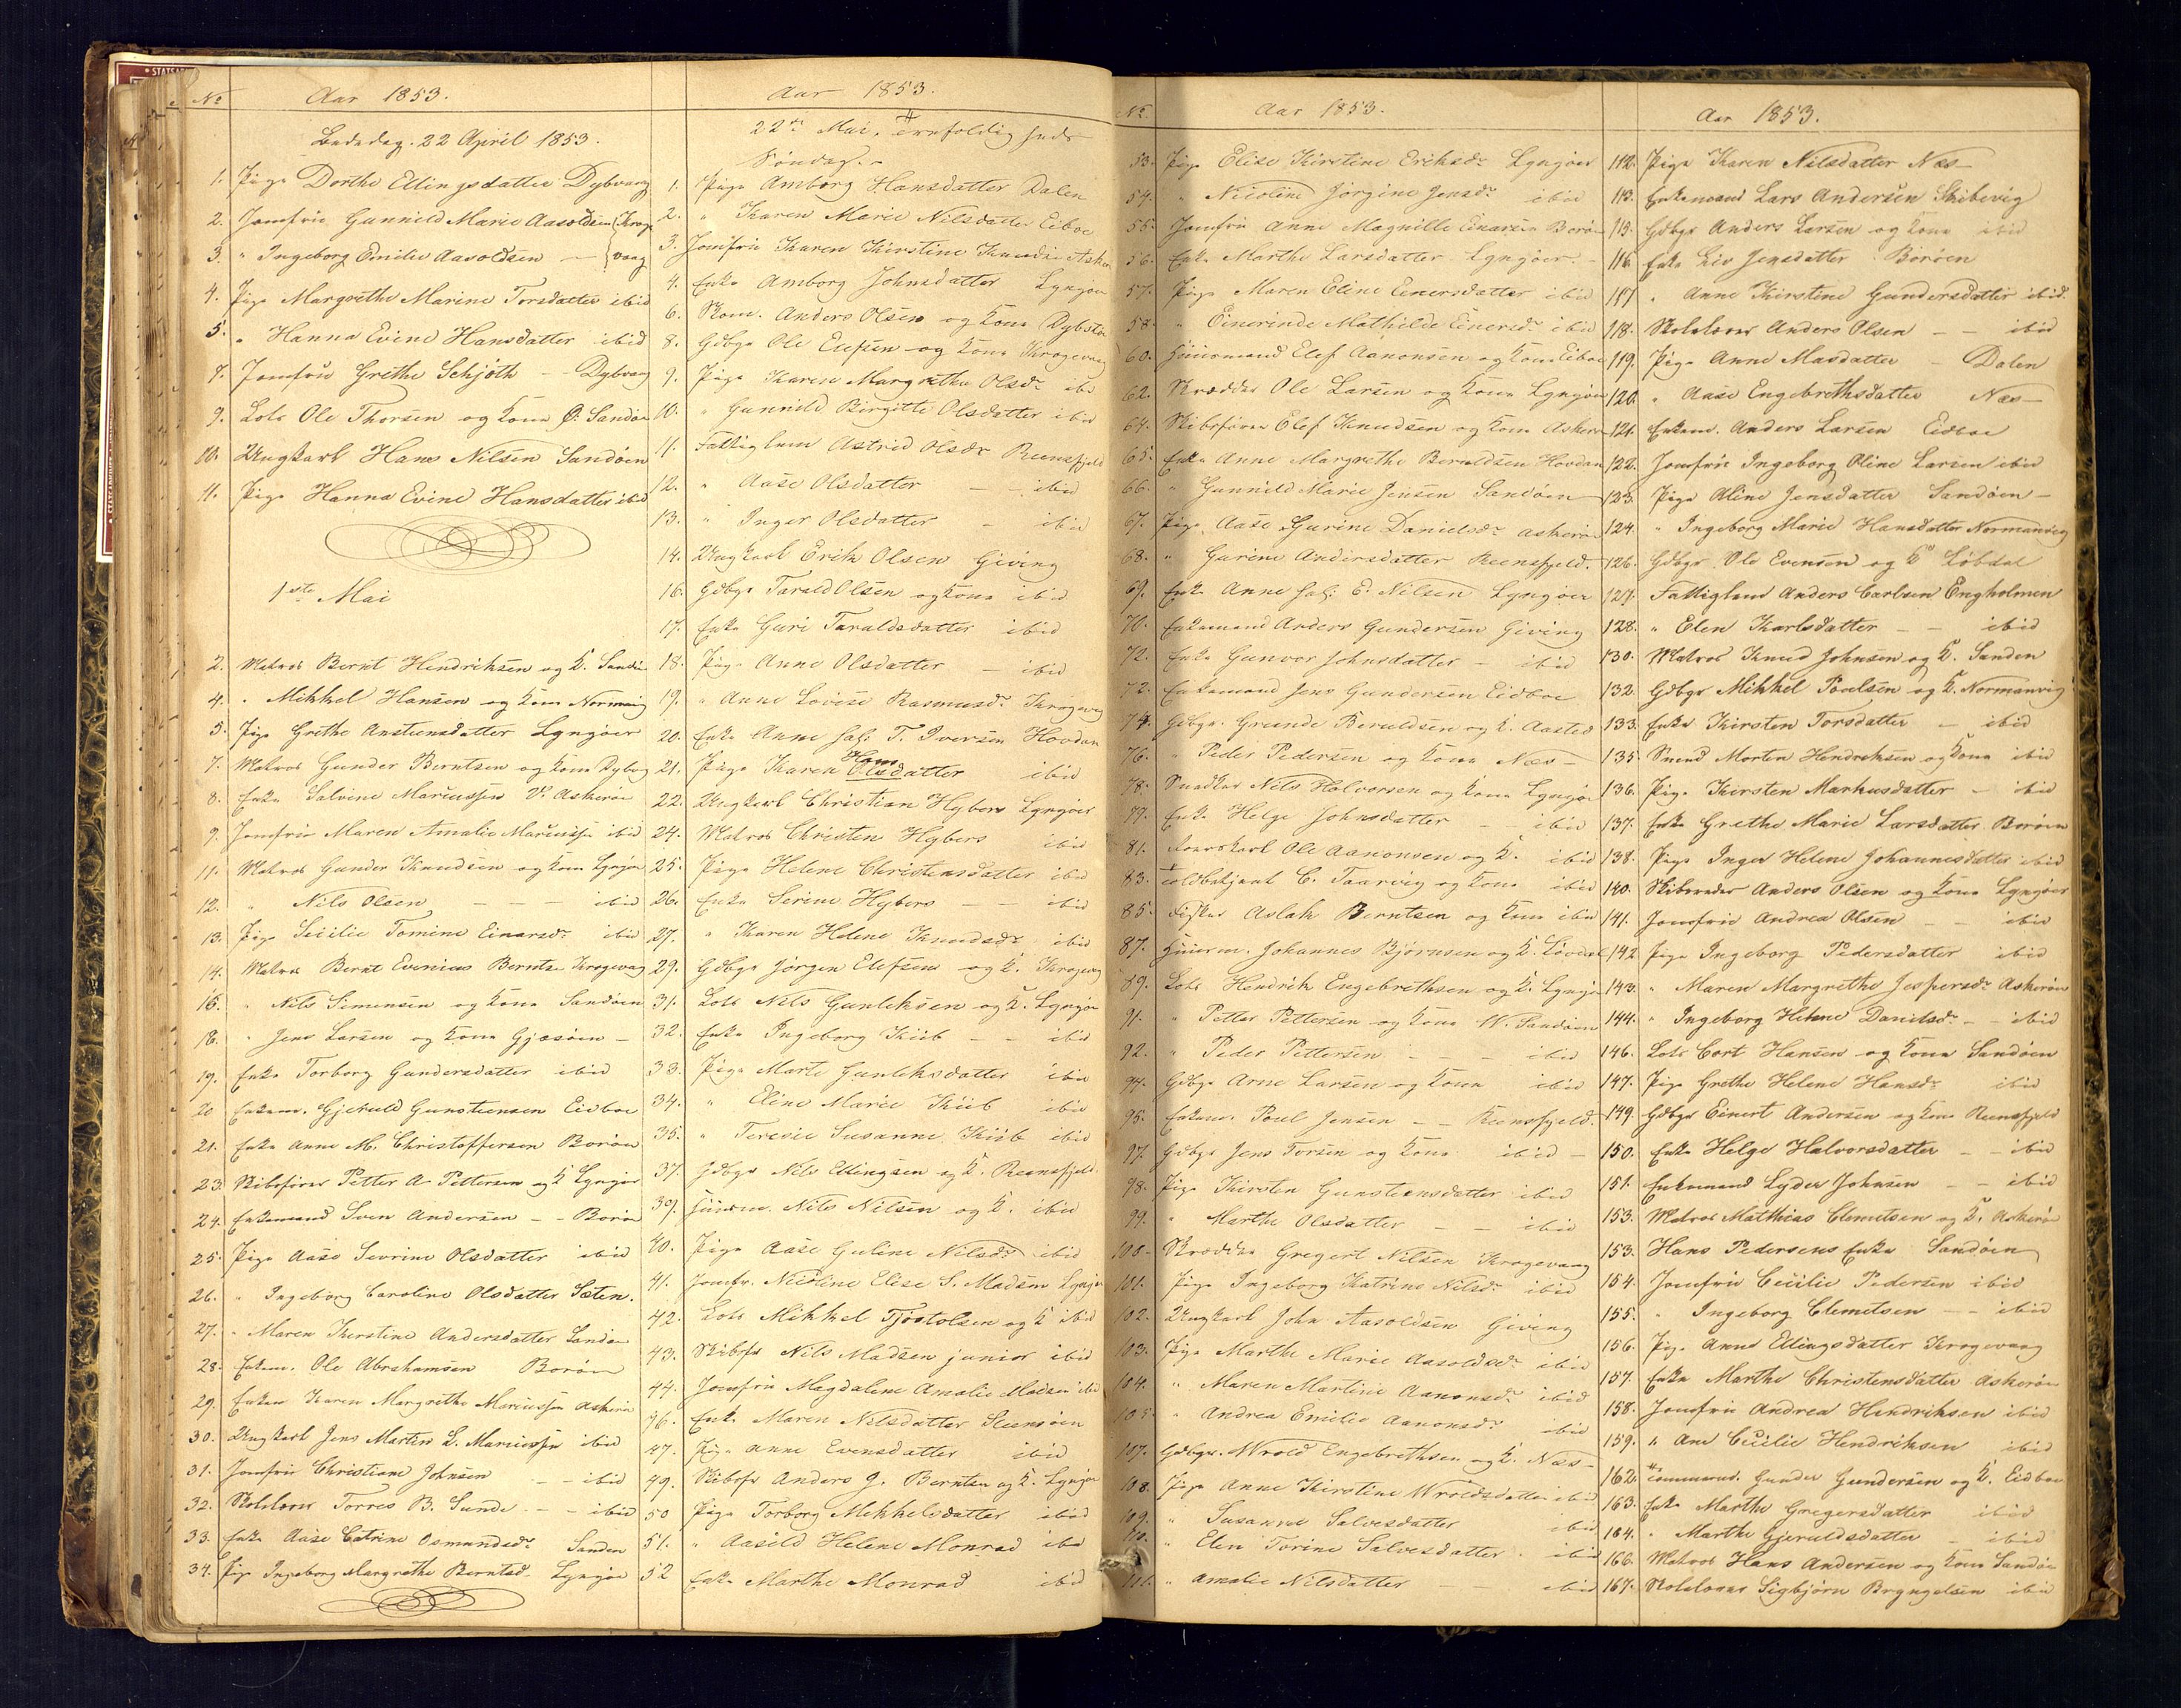 No
Aar 1853.
Bededag. 22 April 1853.
1. Pige Dorthe Ellingsdatter Dybvaag
2. Jomfru Gunnild Marie Aasoldsen (Kroge
3. " Ingeborg Emilie Aasoldsen — (vaag
4. Pige Margrethe Marine Torsdatter ibid
5. " Hanna Evine Hansdatter ibid
7. Jomfru Grethe Schjöth -- Dybvaag
9. Lots Ole Thorsen og Kone Ø. Sandøe
10. Ungkarl Hans Nilsen Sandöen
11. Pige Hanna Evine Hansdatter ibid
1ste Mai
2. Matros Bernt Hendriksen og K. Sandö
4. " Mikkel Hansen og Kone Normvig
5. Pige Grethe Anstensdatter Lyngöer
7. Matros Gunder Berntsen og Kone Dybvg
8. Enke Salvine Mariussen V. Askeröe
9. Jomfru Maren Amalie Mariussen ibid
11. Matros Gunder Knudsen og Kone Lyngör
12. " Nils Olsen — — — ibid
13. Pige Secilie Tomine Einarsdr ibid
14. Matros Bernt Evenius Berntsen Krogevaag
16. " Nils Simensen og Kone Sandöen
18. " Jens Larsen og Kone Gjæsöen —
19. Enke Torborg Gundersdatter ibid
20 Enkem. Gjeruld Gunstensen Eidboe
21. Enke Anne M. Christoffersen Boröen
23. Skibsförer Petter A Pettersen og K Lyngör
24. Enkemand Sven Andersen -- Boröe
25. Pige Aase Sevrine Olsdatter ibid
26. " Ingeborg Caroline Olsdatter Sæten.
27. " Maren Kirstine Andersdatter Sandöe
28. Enkem. Ole Abrahamsen Boröen
29. Enken Karen Margrethe Mariussen Askeröe
30. Ungkarl Jens Martin L. Mariussen ibid
31. Jomfru Christiane Johnsen — ibid
32. Skolelærer Torres B. Sunde -- ibid
33. Enke Aase Catrine Osmundsdr Sanden
34. Pige Ingeborg Margrethe Berntsd. Lyngöe
Aar 1853.
22de Mai. Trefoldigheds
Söndag. -
1. Pige Amborg Hansdatter Dalen
2. " Karen Marie Nilsdatter Eiboe
3. Jomfru Karen Kirstine Knudsen Asker
4. Enke Amborg Johnsdatter Lyngöer
6. Skom. Anders Olsen og Kone Dybsto
8. Gdbgr Ole Elefsen og Kone Krogevaag
9. Pige Karen Margrethe Olsdr ibd
10. " Gunnild Birgitte Olsdatter ibid
11. Fattiglem Astrid Olsdr Reensfjeld
12. " Aase Olsdatter — ibid
13. " Inger Olsdatter — ibid
14. Ungkarl Erik Olsen Giving
16. Gdbgr Tarald Olsen og Kone ibid
17. Enke Guri Taraldsdatter ibid
18. Pige Anne Olsdatter — ibid
19. " Anne Lovise Rasmusdr Krogevag
20. Enke Anne sal. T. Iversen Hovdan
21. Pige Karen Hans Olsdatter ibid
22. Ungkarl Christian Hybers Lyngöer
24. Matros Christen Hybers ibid
25. Pige Helene Christensdatter ibid
26. Enke Serine Hybers — — ibid
27. " Karen Helene Knudsdr ibid
29. Gdbgr Jörgen Elefsen og K. Krogevag
31. Lots Nils Gunleksen og K. Lyngör
32. Enke Ingeborg Kiib — — ibid
33. Pige Marte Gunleksdatter ibid
34. " Eline Marie Kiib ibid
35. " Teresie Susanne Kiib ibid
37 Gdbgr Nils Ellingsen og K. Reensfjeld
39. Huusm. Nils Nilsen og K. ibid
40. Pige Aase Guline Nilsdr ibid
41. Jomfr. Nicoline Elise S. Madsen Lyngör
42. Lots Mikkel Tjöstolsen og K ibid
43. Skibsfr Nils Madsen junior ibid
44. Jomfru Magdalene Amalie Madsen ibid
46. Enke Maren Nilsdatter Steensöen
47. Pige Anne Evensdatter ibid
49. Skibsfr Anders G. Berntsen og K. Lyngör
50 Pige Torborg Mikkelsdatter ibid
51. " Aasild Helene Monrad ibd
52 Enke Marthe Monrad ibid
No
Aar 1853.
53. Pige Elise Kirstine Eriksdr Lyngöer
54. " Nicoline Jörgine Jensdr ibid
55. Jomfru Anne Magnille Einarsen Boröe
56. Enke Marthe Larsdatter Lyngöer. -
57. Pige Maren Eline Einersdatter ibid
58. " Einerinde Mathilde Einersdr ibid
60. Huusmand Elef Aanonsen og Kone Eiboe
62. Skrædder Ole Larsen og Kone Lyngöer
64. Skibsförer Elef Knudsen og Kone Askerö
65. Enke Anne Margrethe Beruldsen Hovdan
66. " Gunnild Marie Jensen Sandöen
67. Pige Aase Gurine Danielsdr Askeröe
68. " Gurine Andersdatter Reensfjeld.
69. Enke Anne sal. E. Nilsen Lyngöer
70. Enkemand Anders Gundersen Giving
72. Enke Gunvor Johnsdatter - ibid
72. Enkemand Jens Gundersen Eidboe
74. Gdbgr. Grunde Beruldsen og K. Aasted
76. " Peder Pedersen og Kone Næs —
78. Snedker Nils Halvorsen og Kone Lyngör
79. Enke Helge Johnsdatter - ibid
81. Roerskarl Ole Aanonsen og K. ibid
83. Toldbetjent C. Taarvig og Kone ibid
85. Fisker Aslak Berntsen og Kone ibid
87. Huusm. Johannes Björnsen og K. Lövdal
89. Lots Hendrik Engebrethsen og K. Lyngör
91. " Petter Pettersen og Kone W. Sandöen
92. " Peder Pettersen - - - ibid
94. Gdbgr Arne Larsen og Kone ibid
95. Enkem. Poul Jensen — — Reensfjeld.
97. Gdbgr Jens Torsen og Kone ibid -
98. Pige Kirsten Gunstensdatter ibid
99. " Marthe Olsdatter — — ibid
100. Skrædder Gregert Nilsen Krogevaag
101. Pige Ingeborg Katrine Nilsdr ibid
102. Ungkarl John Aasoldsen Giving
103. Pige Marthe Marie Aasoldsdr ibid
104. " Maren Martine Aanonsdr ibid
105. " Andrea Emilie Aanonsdr ibid
107. Gdbgr. Wrold Engebrethsen og K. Næs-
108. Pige Anne Kirstine Wroldsdatter ibid
109. " Susanne Salvesdatter ibid
110. " Elen Torine Salvesdatter. ibid
111. " Amalie Nilsdatter — — ibid
Aar 1853.
112. Pige Karen Nilsdatter Næs —
113. Enkemand Lars Andersen Skibevig
115. Gdbgr Anders Larsen og Kone ibid
116. Enke Liv Jensdatter Boröen
117 " Anne Kirstine Gundersdatter ibid.
118. Skolelærer Anders Olsen — — ibid
119. Pige Anne Masdatter — Dalen
120. " Aase Engebrethsdatter Næs —
121. Enkem. Anders Larsen Eidboe
122. Jomfru Ingeborg Oline Larsen ibid
123. Pige Aline Jensdatter Sandöen —
124. " Ingeborg Marie Hansdatter Normanvig
126. Gdbgr. Ole Evensen og Ke Löbdal
127. Fattiglem Anders Carlsen Engholmen
128. " Elen Karlsdatter — — ibid
130. Matros Knud Johnsen og K. Sanden
132. Gdbgr Mikkel Poulsen og K. Normanvig
133. Enke Kirsten Torsdatter — ibid
135. Smed Morten Hendriksen og Kone ibid
136. Pige Kirsten Markusdatter — ibid
137. Enke Grethe Marie Larsdatter Boröen
138. Pige Inger Helene Johannesdatter ibid
140. Skibsreder Anders Olsen og Kone Lyngöer
141. Jomfru Andrea Olsen — — ibid
142 Pige Ingeborg Pedersdatter ibid
143. " Maren Margrethe Jespersdr Askeröe
144. " Ingeborg Helene Danielsdr - - ibid
146. Lots Cort Hansen og Kone Sandöen
147. Pige Grethe Helene Hansdr ibid
149. Gdbgr Einert Andersen og Kone Reensfjeld
150. Enke Helge Halvorsdatter — - ibid
151. Enkemand Lyder Johnsen — - ibid
153. Matros Mathias Clemetsen og K. Askeröe
153. Hans Pedersens Enke Sandöen
154. Jomfru Cecilie Pedersen ibid
155. " Ingeborg Clemetsen — - ibid
156. Pige Anne Ellingsdatter Krogevaag
157. Enke Marthe Christensdatter Askeröe
158. Jomfru Andrea Hendriksen ibid
159. " Ane Cecilie Hendriksen ibid
162. Commerm. Gunder Gundersen og K. Eidboe
163. Enke Marthe Gregersdatter ibid
164. " Marthe Gjeruldsdatter — ibid
166. Matros Hans Andersen og Kone Sandöe
167. Skolelærer Sigbjörn Bryngelsen ibid